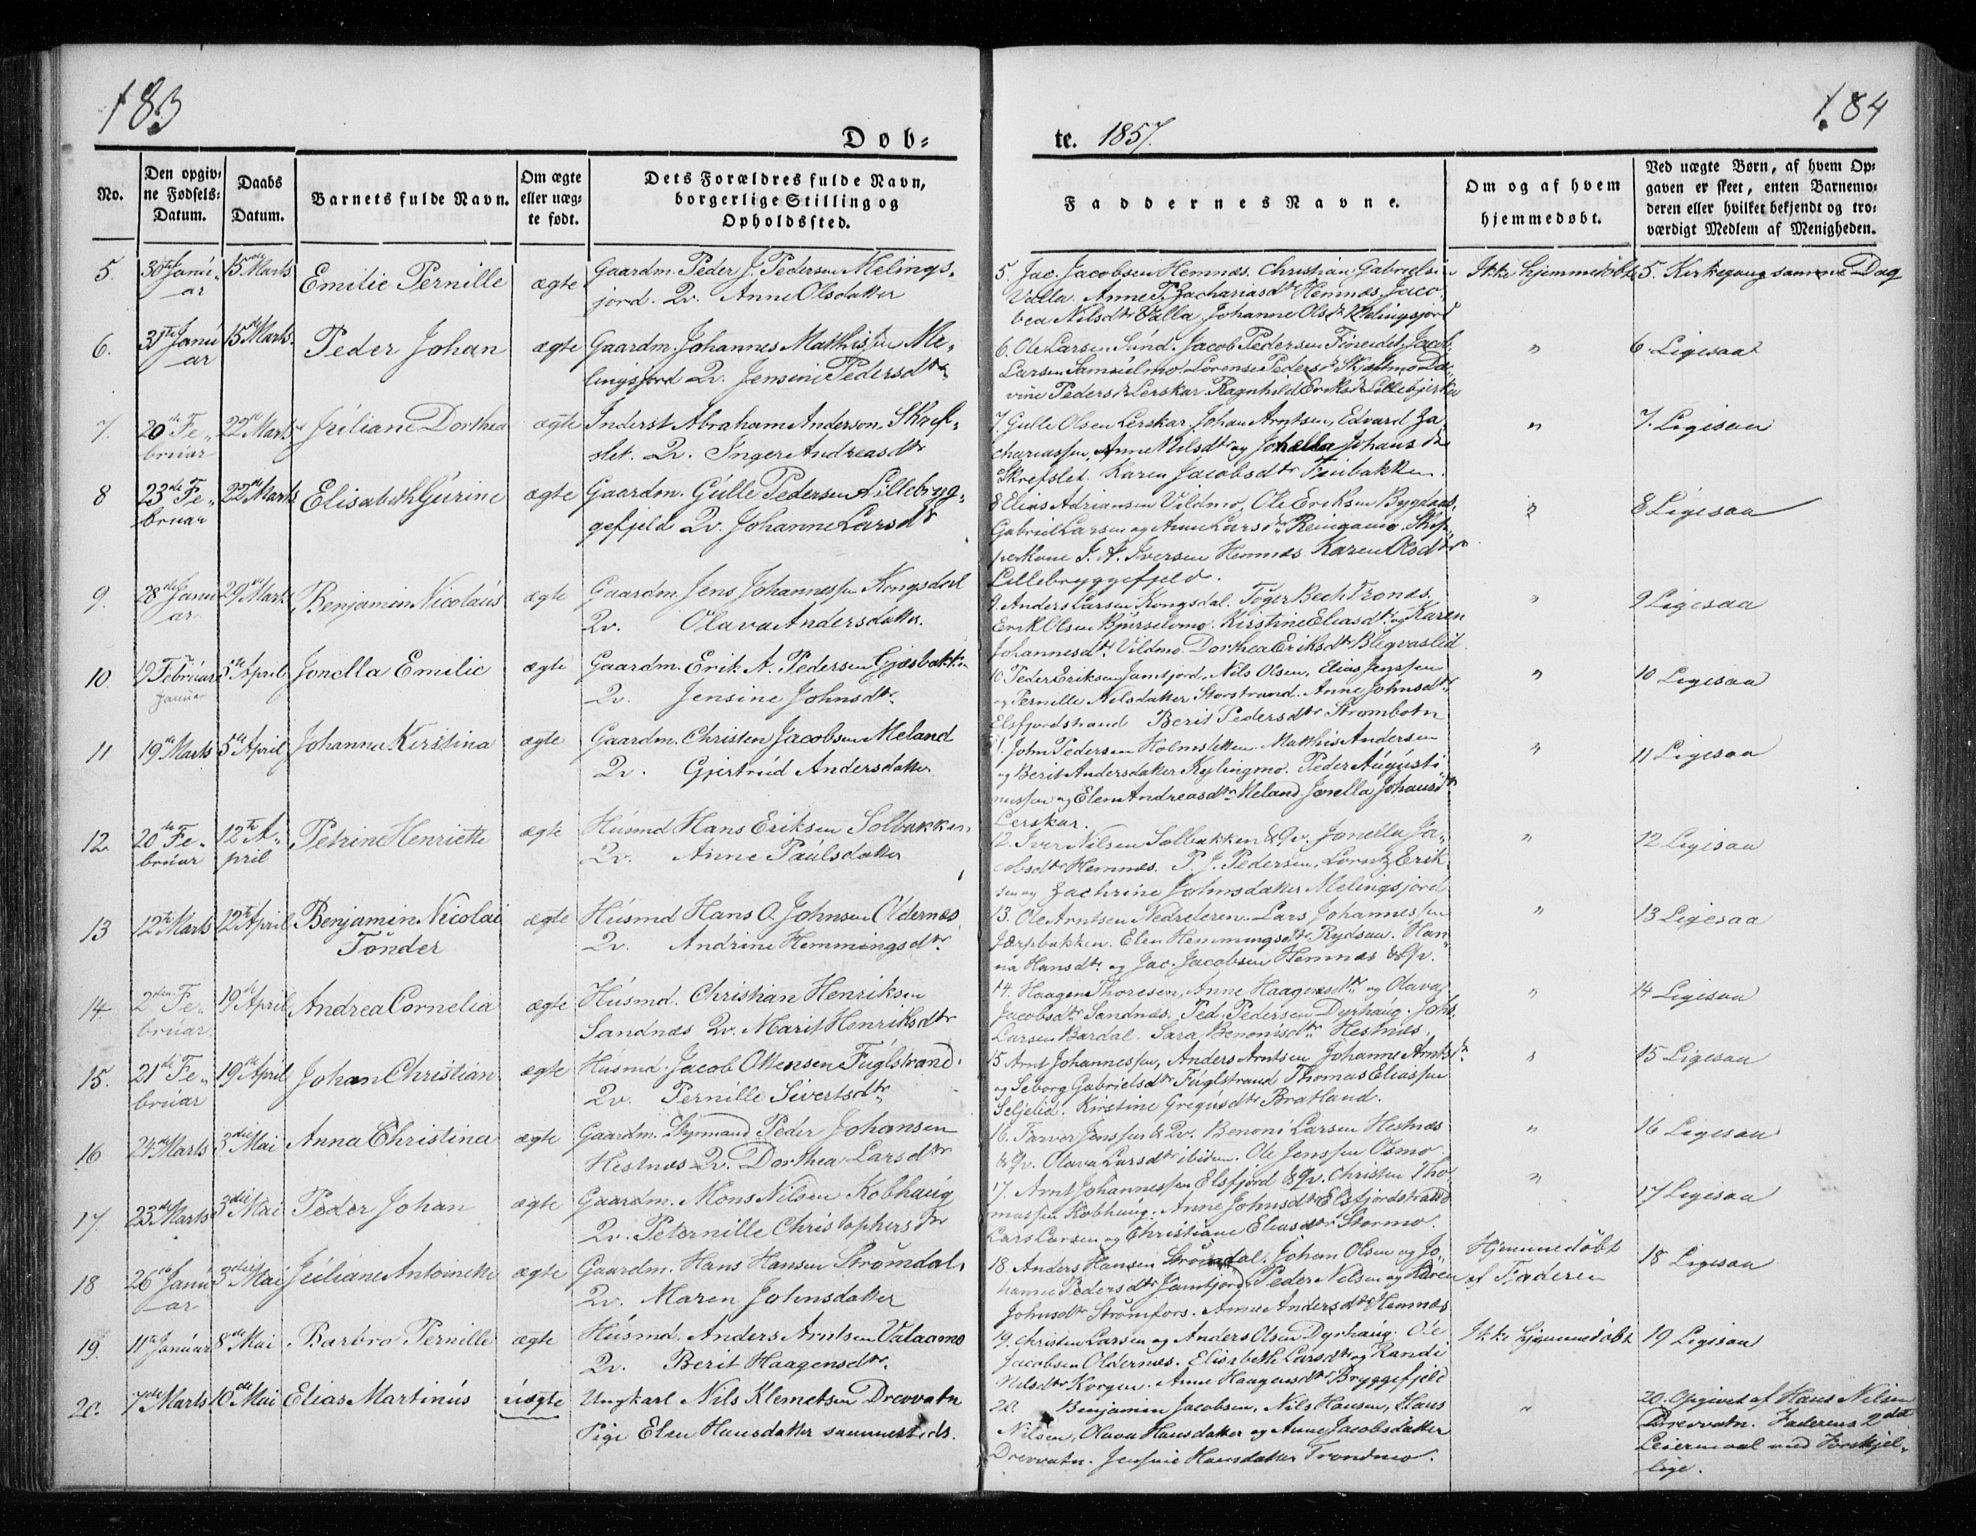 183
184
Døb-
te. 1857.
No.
Den opgiv-
ne Fødsels-
Datum.
Daabs
Datum.
Barnets fulde Navn.
Om ægte
eller uæg-
te født.
Dets Forældres fulde Navn,
borgerlige Stilling og
Opholdssted.
Faddernes Navne.
Om og af hvem
hjemmedøbt.
Ved uægte Børn, af hvem Op-
gaven er skeet, enten Barnemo-
deren eller hvilket bekjendt og tro-
værdigt Medlem af Menigheden.
5. 30te Janu-
ar
15de Marts
Emilie Pernille
ægte
Gaardm. Peder J. Pedersen Melings-
fjord. Qv. Anne Olsdatter
5. Jac. Jacobsen Hemnes. Christian Gabrielsen
Valla. Anne P. Zachariasdtr Hemnes. Jaco-
bea Nilsdtr Valla Johanne Olsdtr Melingsfjord
Ikke hjemmedøbt
5. Kirkegang samme Dag
6. 31te Janu
ar
15de Marts
Peder Johan
ægte
Gaardm. Johannes Matthissen Me-
lingsfjord Qv. Jensine Pedersdtr
6. Ole Larsen Sund. Jacob Pedersen Finneidet. Jacob
Larsen Samuelmo. Lorense Pedersdtr
vine Pedersdtr Lerskar. Ragnhild Eriksdtr Lillebjerka
"
6 Ligesaa
7. 20de Fe-
bruar
22de Marts
Juliane Dorthea
ægte
Inderst Abraham Anderson Skref-
slet. Qv. Inger Andreasdtr
7. Gulle Olsen Lerskar Johan Arntsen, Edvard Za-
chariassen, Anne Nilsdtr og Jonella Johansdtr
Skrefslet. Karen Jacobsdtr
"
7. Ligesaa
8 23de Fe-
bruar
22de Marts
Elisabeth Gurine
ægte
Gaardm. Gulle Pedersen Lillebryg-
gefjeld Qv. Johanne Larsdtr
8 Elias Adriansen Vildmo, Ole Eriksen Bygdaas,
Gabriel Larsen og Anne Larsdtr Skip-
perkone J. A. Iversen Hemnes Karen Olsdtr
Lillebryggefjeld.
"
8 Ligesaa
9. 28de Janu
ar
29de Marts
Benjamin Nicolaus
ægte
Gaardm. Jens Johannessen Kongsdal
Qv. Olava Andersdatter
9. Anders Larsen Kongsdal. Tøger Bech Tronæs.
Erik Olsen Kirstine Eliasdtr og Karen
Johannesdtr Vildmo. Dorthea Eriksdtr
"
9 Ligesaa
10. 19 Februar
Januar
5te April
Jonella Emilie
ægte
Gaardm. Erik A. Pedersen Gjæsbakken
Qv. Jensine Johnsdtr.
10 Peder Eriksen Jamtjord, Nils Olsen, Elias Jenssen
og Pernille Nilsdatter Storstrand. Anne Johnsdtr
Elsfjordstrand Berit Pedersdtr Strombotn
"
10 Ligesaa
11 19de Marts
5te April
Johanna Kirstina
ægte
Gaardm. Christen Jacobsen Meland
Qv. Gjertrud Andersdatter
11. John Pedersen Holmsletten. Matthis Andersen
og Berit Andersdatter Kylingmo. Peder Augusti
nussen og Elen Andreasdtr Meland Jonella Johansdtr
Lerskar.
"
11 Ligesaa
12. 20de Fe-
bruar
12te A-
pril
Petrine Henriette
ægte
Husmd Hans Eriksen Solbakken
Qv. Anne Paulsdatter
12. Iver Nilsen Solbakken & Qv. Jonella Ja-
cobsdtr Hemnes. P. J. Pedersen, Lorntz Erik-
sen og Zachrine Johnsdatter Melingsfjord
"
12 Ligesaa
13 12te Marts
12te April
Benjamin Nicolai
Tønder
ægte
Husmd Hans O. Johnsen Oldernes
Qv. Andrine Hemmingsdtr
13. Ole Arntsen Nedreleren. Lars Johannessen
Jærpbakken. Elen Hemmingsdtr Rydsaa. Han-
na Hansdtr og Jac. Jacobsen Hemnes & Qv.
"
13 Ligesaa
14 2den Fe-
bruar
19de April
Andrea Cornelia
ægte
Husmd. Christian Henriksen
Sandnæs Qv. Marit Henriksdtr
14. Haagen Thoresen, Anne Haagensdtr og Olava
Jacobsdtr Sandnæs. Ped. Pedersen Dyrhaug. Johs.
Larsen Bardal. Sara Benonisdtr Hestnæs.
"
14 Ligesaa
15. 21de Fe-
bruar
19de April
Johan Christian
ægte
Husmd. Jacob Ottensen Fuglstrand.
Qv. Pernille Sivertsdtr
15 Arnt Johannessen, Anders Arntsen, Johanne Arntsdtr
og Seborg Gabrielsdtr Fuglstrand Thomas Eliassen
Seljelid. Kirstine Gregusdtr Bratland.
"
15 Ligesaa
16 24de Marts
3die Mai
Anna Christina
ægte
Gaardm. Peder Johansen
Hestnæs Qv. Dorthea Larsdtr
16. Farver Jenssen & Qv. Benoni Larsen Hestnæs
& Qv. Olava Larsdtr ibidem. Ole Jenssen Osmo.
"
16 Ligesaa
17. 23de Marts
3die Mai
Peder Johan
ægte
Gaardm. Mons Nilsen Kobhaug
Qv. Peternille Christophersdtr
17. Arnt Johannessen Elsfjord & Qv. Christen Tho-
massen Kobhaug. Anne Johnsdtr Elsfjordstrand
Lars Larsen og Christiane Eliasdtr Stormo.
"
17 Ligesaa
18 26de Janu
ar
3die Mai
Juliane Antoinette
ægte
Gaardm. Hans Hansen Strømdal.
Qv. Maren Johnsdatter
18. Anders Hansen Strømdal, Johan Olsen og Jo-
hanne Pedersdtr Jamtjord, Peder Nilsen og Karen
Johnsdtr Strømfors. Anne Andersdtr Hemnæs
Hjemmedøbt
af Faderen
18 Ligesaa
19. 11te Januar
8de Mai
Barbro Pernille
ægte
Husmd. Anders Arntsen Valaamo
Qv. Berit Haagensdtr.
19. Christen Larsen og Anders Olsen Dyrhaug. Ole
Jacobsen Oldernæs. Elisabeth Larsdtr og Randi
Nilsdtr Korgen. Anne Haagensdtr Bryggefjeld
Ikke hjemmedøbt
19 Ligesaa
20. 7de Marts
10de Mai
Elias Martinus
uægte
Ungkarl Nils Klemetsen Drevvatn
Pige Elen Hansdatter sammesteds.
20 Benjamin Jacobsen, Nils Hansen, Hans
Nilsen, Olava Hansdatter og Anne Jacobsdatter
Drevvatn. Jensine Hansdatter Trondmo.
"
20. Opgivet af Hans Nilsen
Drevvatn. Faderens 2det
Leiermaal med Forskjel-
lige.